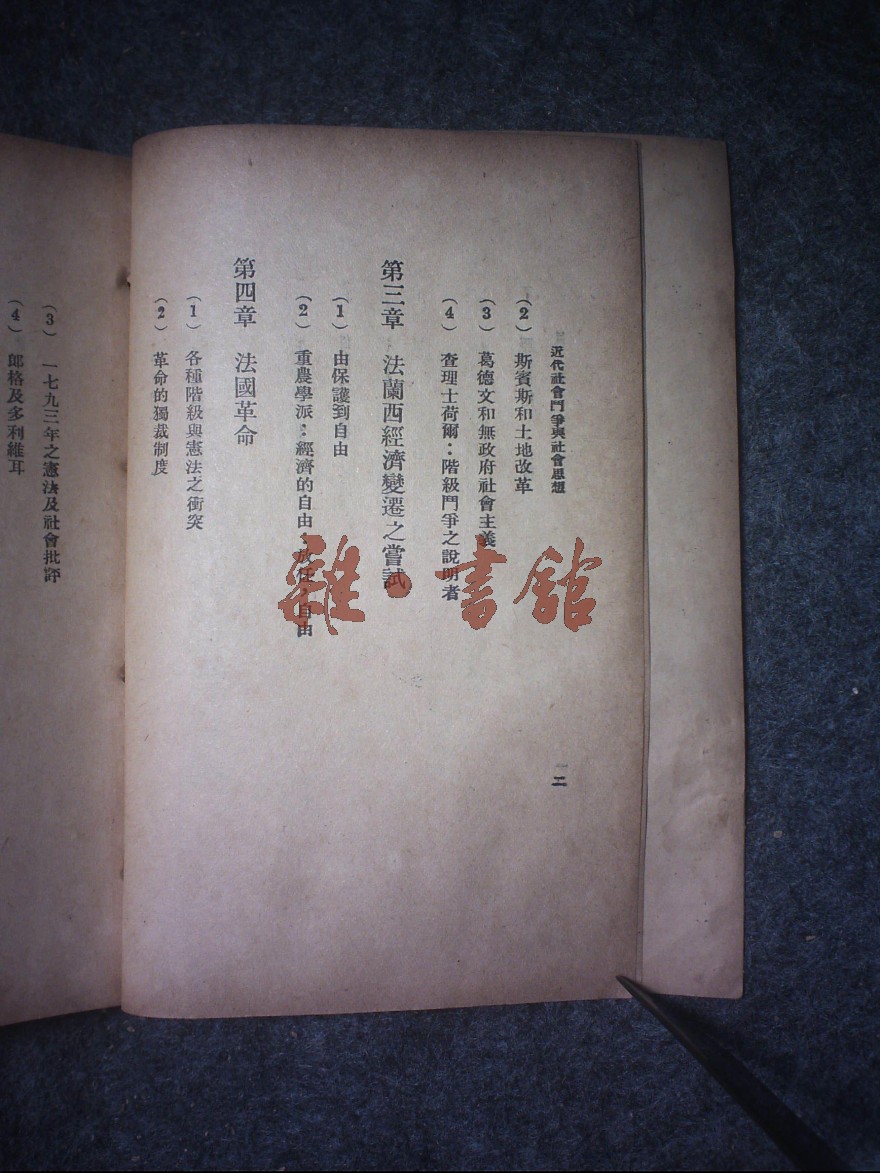 近代社會鬥爭與社會思想
二
(2) 斯賓斯和土地改革
(3) 葛德文和無政府社會主義
(4) 查理士荷爾：階級鬥爭之說明者
第三章 法蘭西經濟變遷之嘗試
(1) 由保護到自由
(2) 重農學派：經濟的自由，放任，自由
第四章 法國革命
(1) 各種階級與憲法之衝突
(2) 革命的獨裁制度
(3) 一七九三年之憲法及社會批評
(4) 郎格及多利維耳
雜·書館